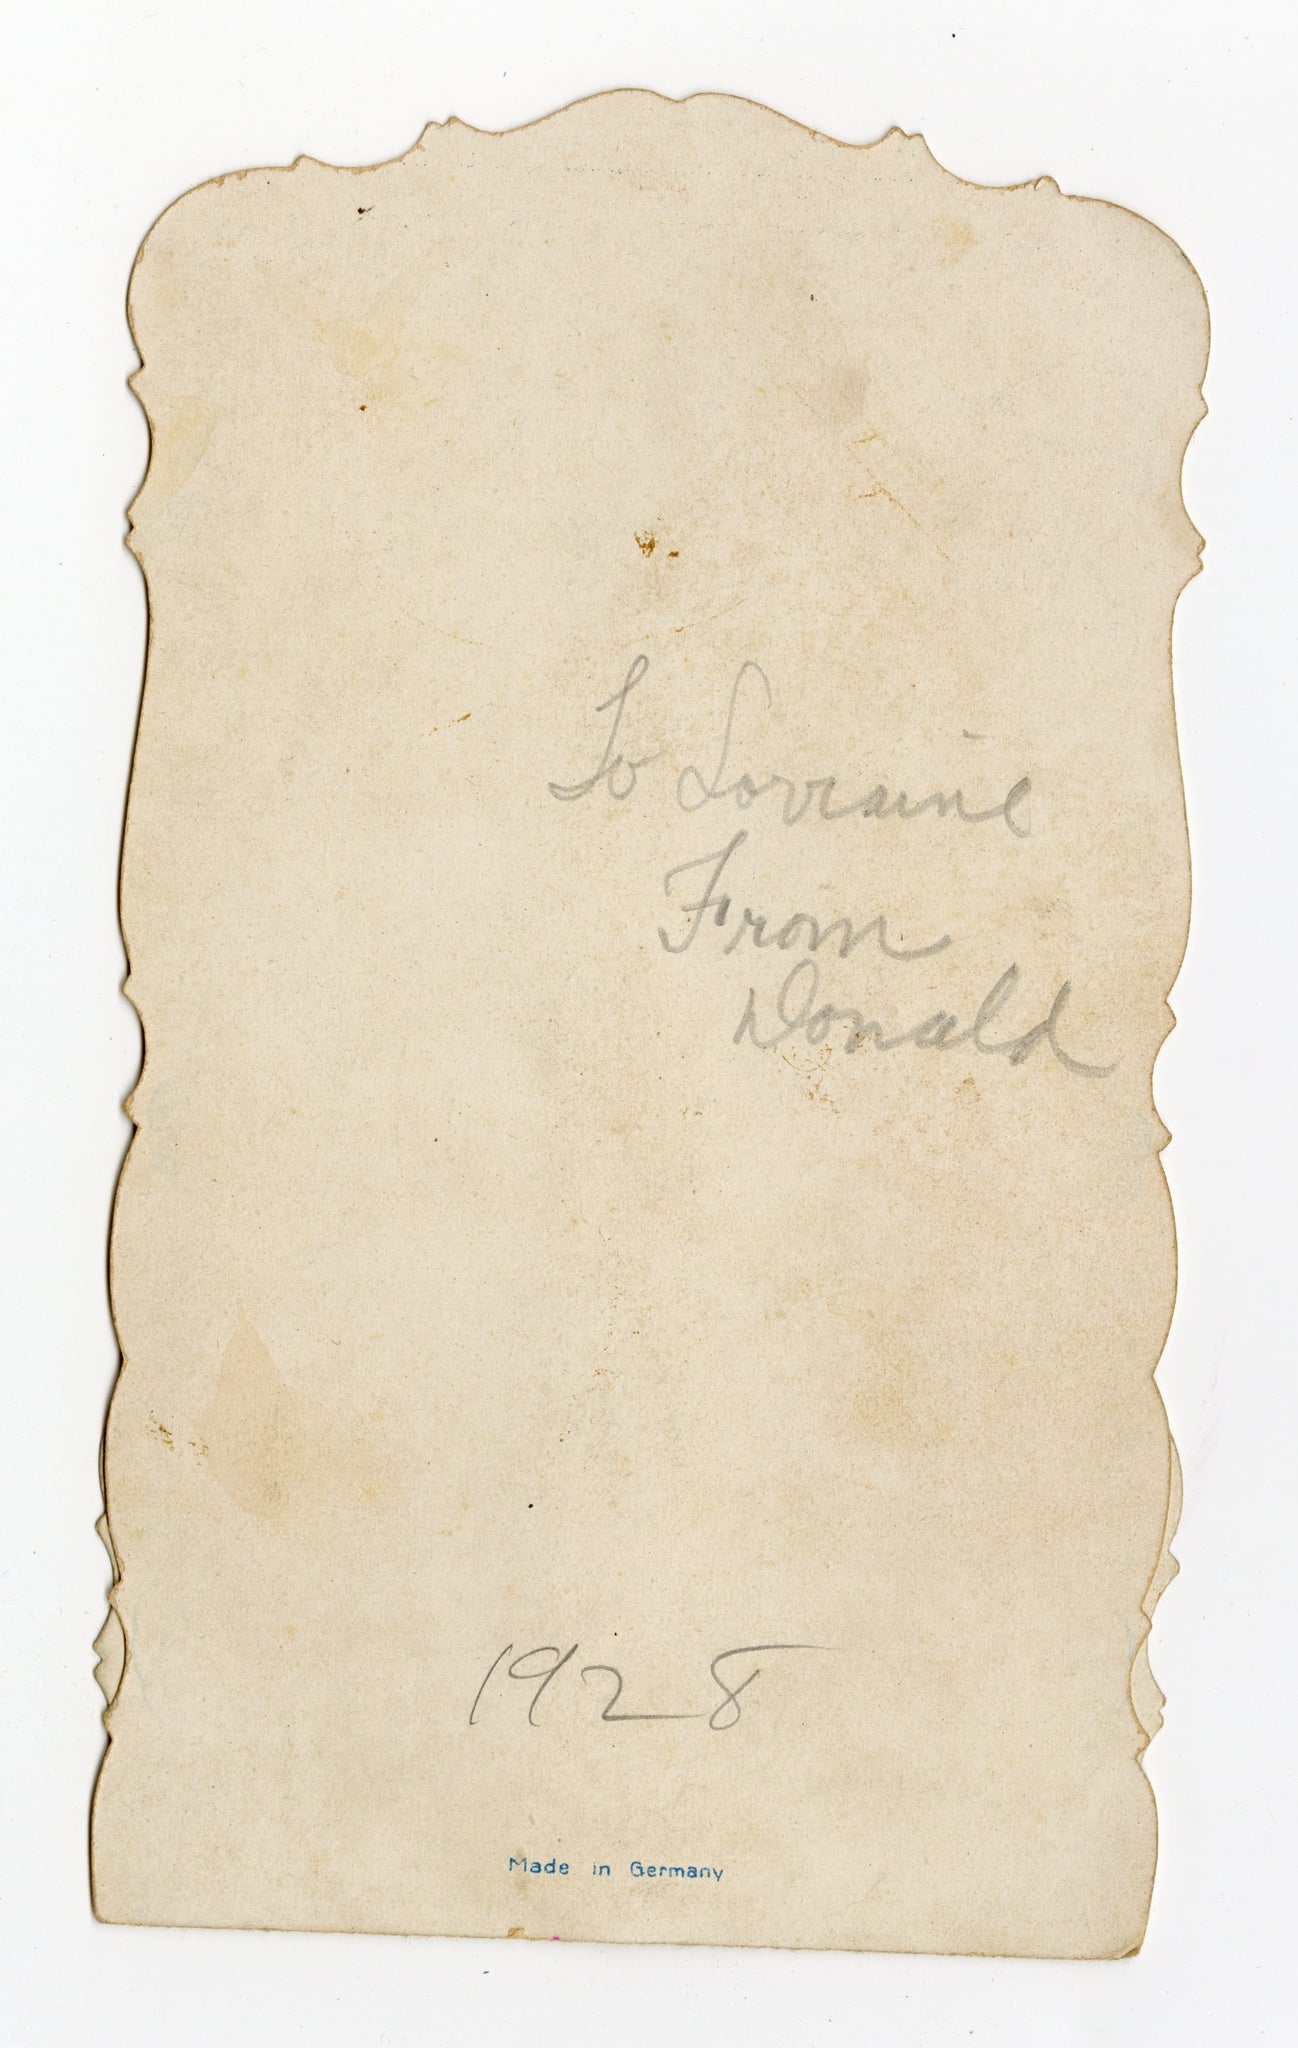 To Lorraine
From
Donald
1928
Made in Germany